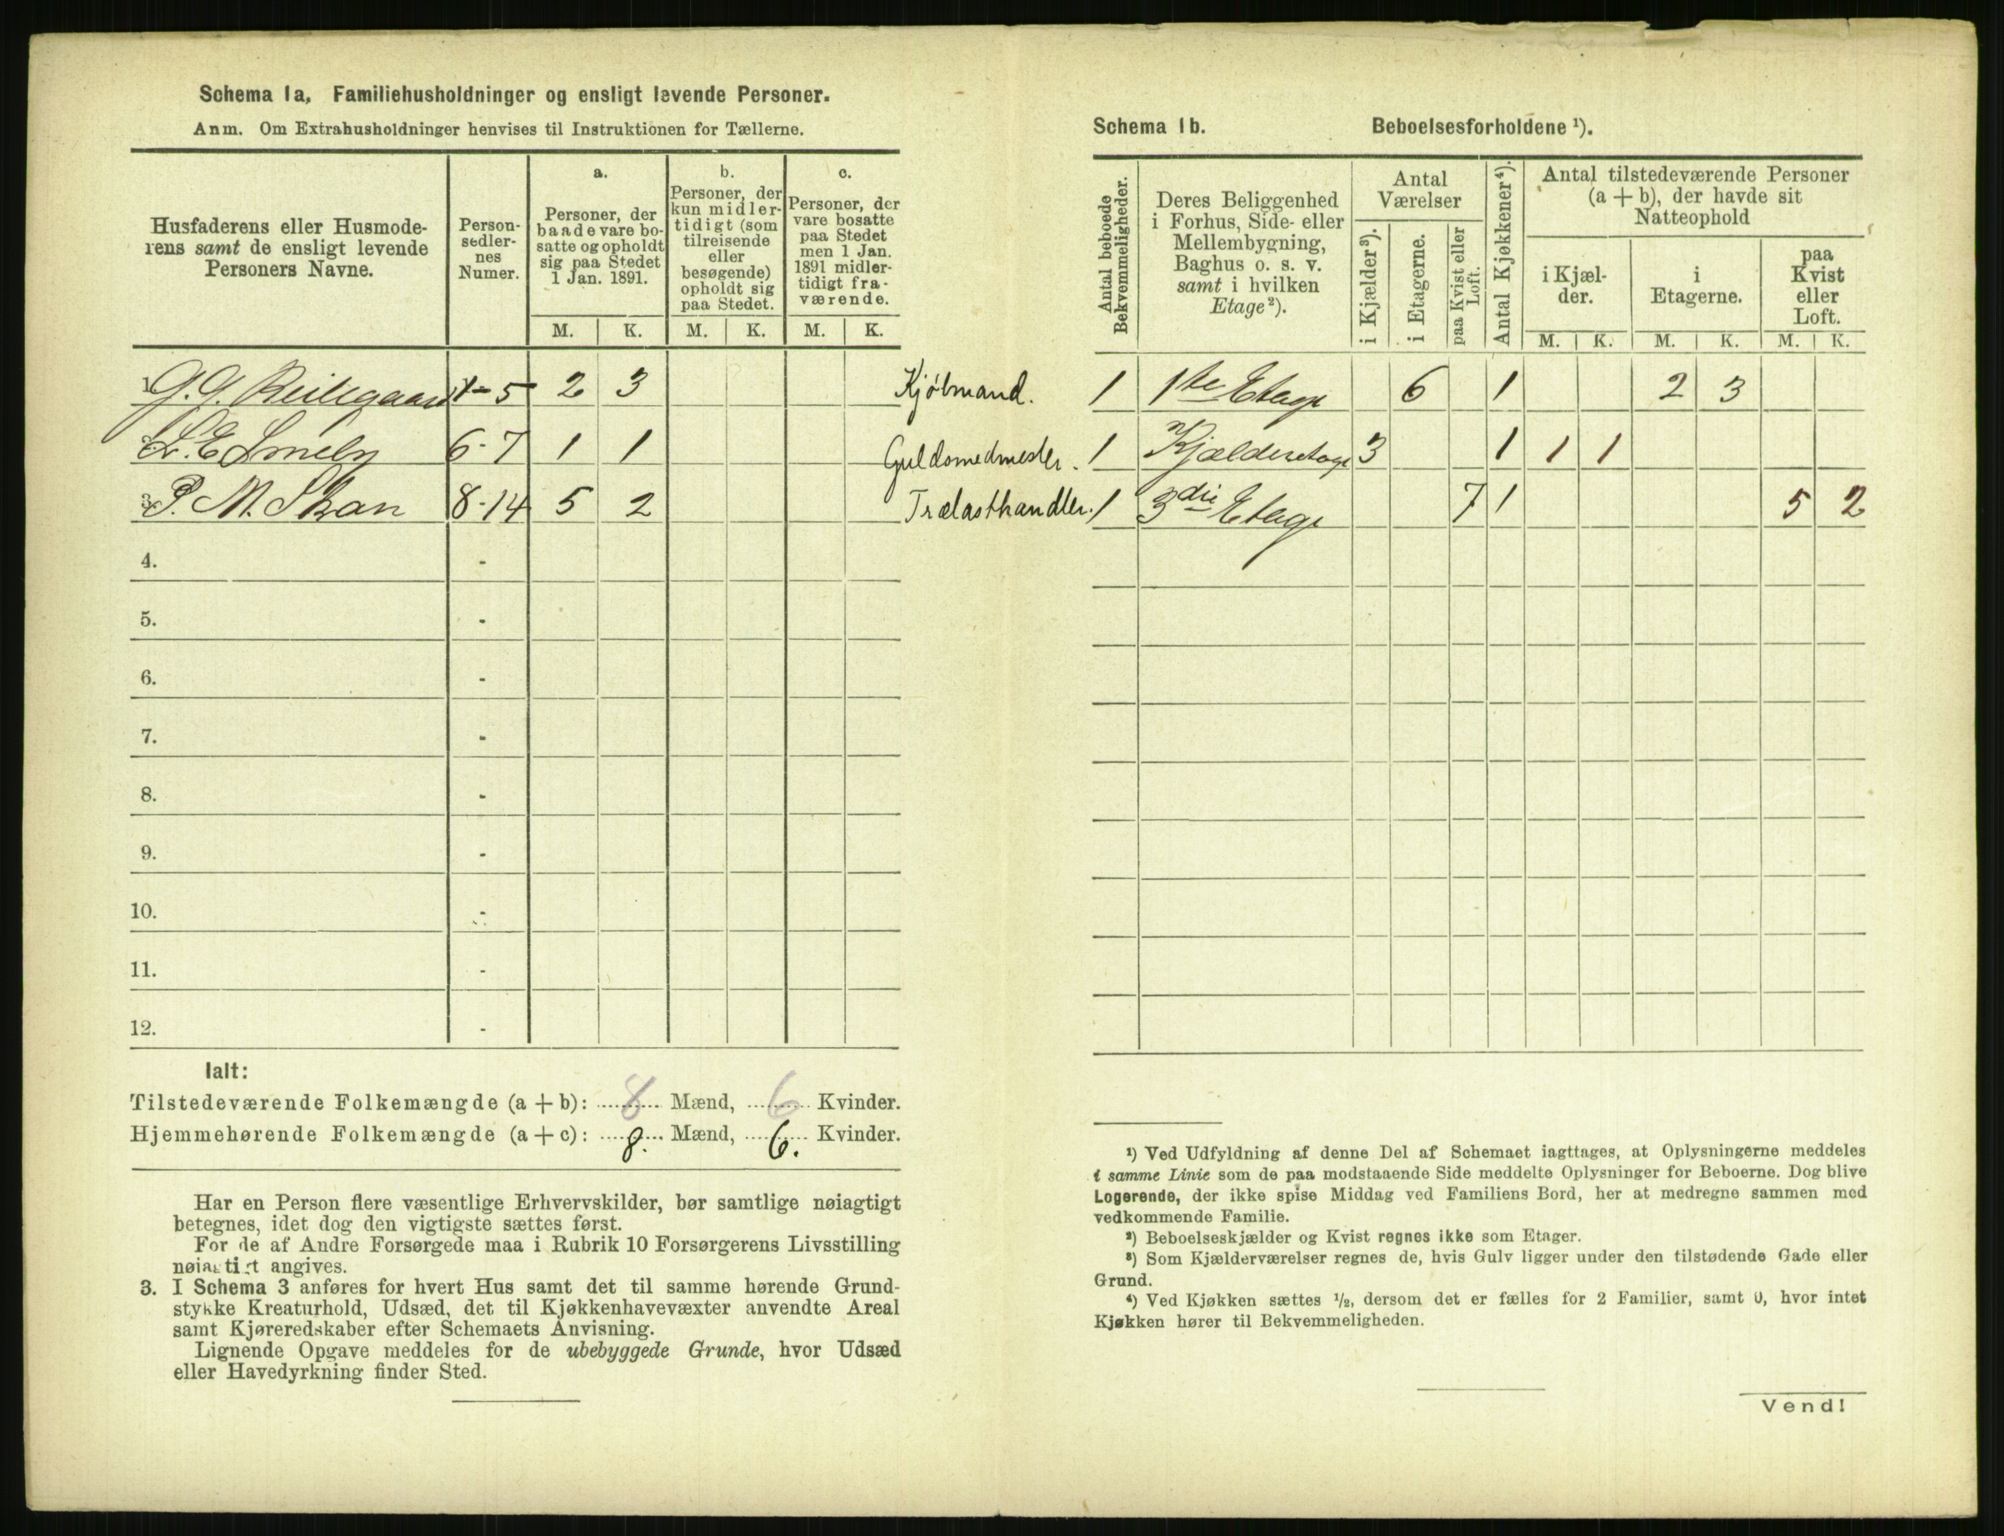 Schema 1a, Familiehusholdninger og ensligt levende Personer.
Anm. Om Extrahusholdninger henvises til Instruktionen for Tællerne.
Husfaderens eller Husmode-
rens samt de ensligt levende
Personers Navne.
Person-
sedler-
nes
Numer.
a.
Personer, der
baade vare bo-
satte og opholdt
sig paa Stedet
1 Jan. 1891.
b.
Personer, der
kun midler-
tidigt (som
tilreisende
eller
besøgende)
opholdt sig
paa Stedet.
c.
Personer, der
vare bosatte
paa Stedet
men 1 Jan.
1891 midler-
tidigt fra-
værende.
M. K. M. K. M. K.
1. G. G. 1-5 2 3 Kjøbmand.
2. L. E. Smeby 6-7 1 1 Guldsmedmester.
3. P. M. Skan 8-14 5 2 Trælasthandler.
4. -
5. -
6. -
7. -
8. -
9. -
10. -
11. -
12. -
Ialt:
Tilstedeværende Folkemængde (a + b): 8 Mænd, 6 Kvinder.
Hjemmehørende Folkemængde (a + c): 8. Mænd, 6. Kvinder.
Har en Person flere væsentlige Erhvervskilder, bør samtlige nøiagtigt
betegnes, idet dog den vigtigste sættes først.
For de af Andre Forsørgede maa i Rubrik 10 Forsørgerens Livsstilling
nøiagtigt angives.
3. I Schema 3 anføres for hvert Hus samt det til samme hørende Grund-
stykke Kreaturhold, Udsæd, det til Kjøkkenhavevæxter anvendte Areal
samt Kjøreredskaber efter Schemaets Anvisning.
Lignende Opgave meddeles for de ubebyggede Grunde, hvor Udsæd
eller Havedyrkning finder Sted.
Schema 1b. Beboelsesforholdene ¹).
Antal beboede
Bekvemmeligheder.
Deres Beliggenhed
i Forhus, Side- eller
Mellembygning,
Baghus o. s. v.
samt i hvilken
Etage²).
Antal
Værelser
i Kjælder³).
i Etagerne.
paa Kvist eller
Loft.
Antal Kjøkkener⁴).
Antal tilstedeværende Personer
(a + b), der havde sit
Natteophold
i Kjæl-
der.
i
Etagerne.
paa
Kvist
eller
Loft.
M. K. M. K. M. K.
1 1ste Etage 6 1 2 3
1 Kjælderetage 3 1 1 1
1 3die Etage 7 1 5 2
¹) Ved Udfyldning af denne Del af Schemaet iagttages, at Oplysningerne meddeles
i samme Linie som de paa modstaaende Side meddelte Oplysninger for Beboerne. Dog blive
Logerende, der ikke spise Middag ved Familiens Bord, her at medregne sammen med
vedkommende Familie.
²) Beboelseskjælder og Kvist regnes ikke som Etager.
³) Som Kjælderværelser regnes de, hvis Gulv ligger under den tilstødende Gade eller
Grund.
⁴) Ved Kjøkken sættes ½, dersom det er fælles for 2 Familier, samt 0, hvor intet
Kjøkken hører til Bekvemmeligheden.
Vend!